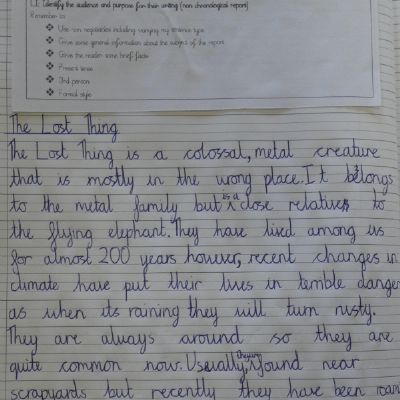 L.I: Identify the audience and purpose for their writing (non chronological report)
Remember to:
Use non negotiables including varying my sentence type
Give some general information about the subject of the report
Give the reader some brief facts
Present tense
3rd person
Formal style
The Lost Thing
The Lost Thing is a colossal, metal creature
that is mostly in the wrong place. It belongs
to the metal family but is a close relative to
the flying elephant. They have lived among us
for almost 200 years however, recent changes in
climate have put their lives in terrible danger
as when its raining they will turn rusty.
They are always around so they are
quite common now. Usually, found near
scrapyards but recently they have been